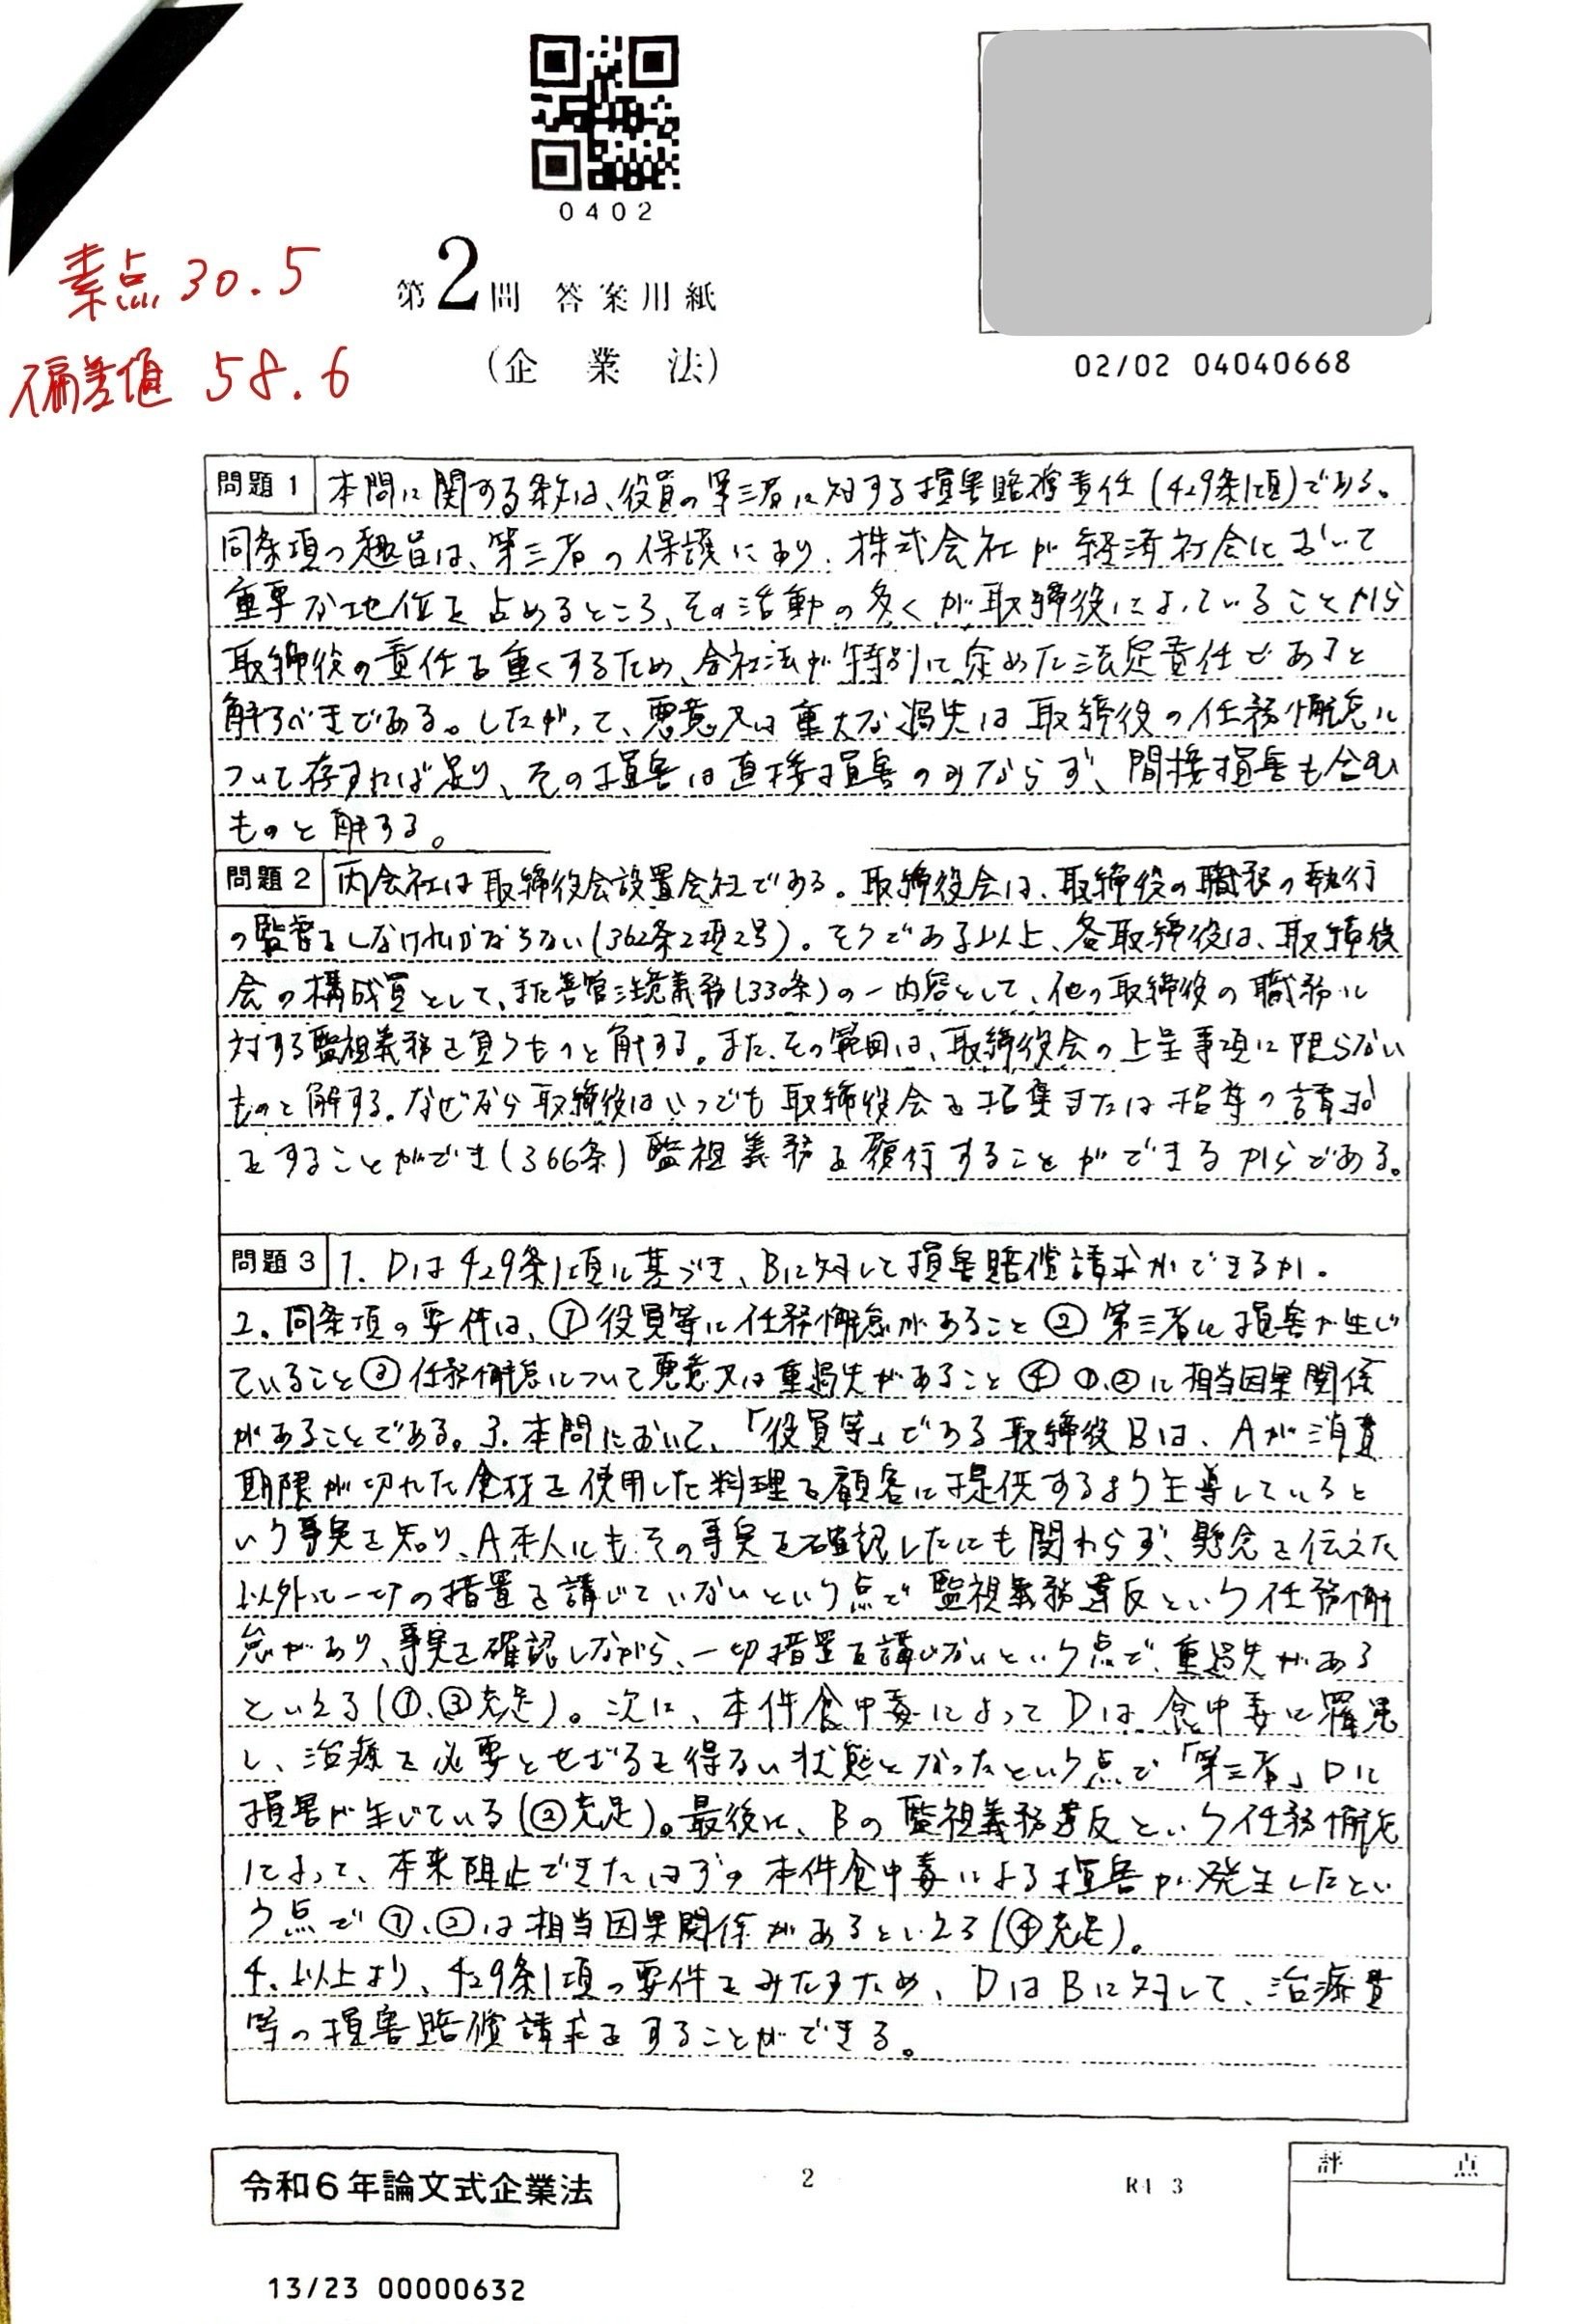 0402
素点 30.5
偏差値 58.6
第2問 答案用紙
(企業法)
02/02 04040668
問題1 本問に関する条文は、役員の第三者に対する損害賠償責任(429条1項)である。
同条項の趣旨は、第三者の保護にあり、株式会社が経済社会において
重要な地位を占めるところ、その活動の多くが取締役によっていることから
取締役の責任を重くするため、会社法が特別に定めた法定責任であると
解すべきである。したがって、悪意又は重大な過失は取締役の任務懈怠に
ついて存すれば足り、その損害は直接損害のみならず、間接損害も含む
ものと解する。
問題2 丙会社は取締役会設置会社である。取締役会は、取締役の職務の執行
の監督をしなければならない(362条2項2号)。そうである以上、各取締役は、取締役
会の構成員として、また善管注意義務(330条)の一内容として、他の取締役の職務に
対する監視義務を負うものと解する。また、その範囲は、取締役会の上呈事項に限らない
ものと解する。なぜなら取締役はいつでも取締役会を招集または招集の請求
をすることができ(366条)監視義務を履行することができるからである。
問題3 1. Dは429条1項に基づき、Bに対して損害賠償請求ができるか。
2. 同条項の要件は、①役員等に任務懈怠があること②第三者に損害が生じ
ていること③任務懈怠について悪意又は重過失があること④①、②に相当因果関係
があることである。3. 本問において、「役員等」である取締役Bは、Aが消費
期限が切れた食材を使用した料理を顧客に提供するよう主導していると
いう事実を知り、A本人にもその事実を確認したにも関わらず、懸念を伝えた
以外に一切の措置を講じていないという点で監視義務違反という任務懈
怠があり、事実を確認しながら、一切措置を講じないという点で、重過失がある
といえる(①、③充足)。次に、本件食中毒によってDは食中毒に罹患
し、治療を必要とせざるを得ない状態となったという点で「第三者」Dに
損害が生じている(②充足)。最後に、Bの監視義務違反という任務懈怠
によって、本来阻止できたはずの本件食中毒による損害が発生したとい
う点で①、②は相当因果関係があるといえる(④充足)。
4. 以上より、429条1項の要件をみたすため、DはBに対して、治療費
等の損害賠償請求をすることができる。
令和6年論文式企業法
2
R4 3
評点
13/23 00000632